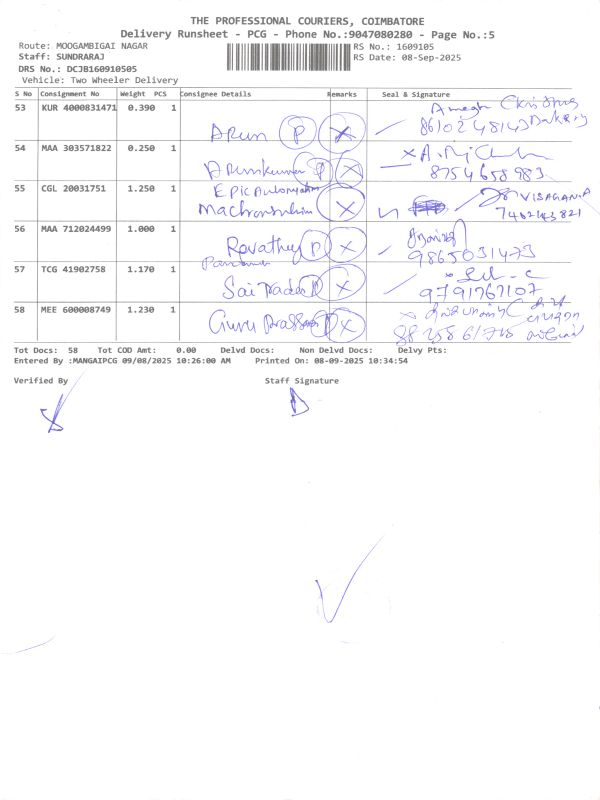 THE PROFESSIONAL COURIERS, COIMBATORE
Delivery Runsheet - PCG - Phone No.:9047080280 - Page No.:5
Route: MOOGAMBIGAI NAGAR
RS No.: 1609105
Staff: SUNDRARAJ
RS Date: 08-Sep-2025
DRS No.: DCJB160910505
Vehicle: Two Wheeler Delivery
S No Consignment No Weight PCS Consignee Details Remarks Seal & Signature
53 KUR 4000831471 0.390 1
Arun P X
8610248143 Bakery
54 MAA 303571822 0.250 1
Arunkumar P X
8754658983
55 CGL 20031751 1.250 1
Epic Automation
X VISAGAN.A
56 MAA 712024499 1.000 1
Revathy P X 9865031473
57 TCG 41902758 1.170 1
Sai P X 9791767107
58 MEE 600008749 1.230 1
Guru P X
Tot Docs: 58 Tot COD Amt: 0.00 Delvd Docs: Non Delvd Docs: Delvy Pts:
Entered By :MANGAIPCG 09/08/2025 10:26:00 AM Printed On: 08-09-2025 10:34:54
Verified By Staff Signature